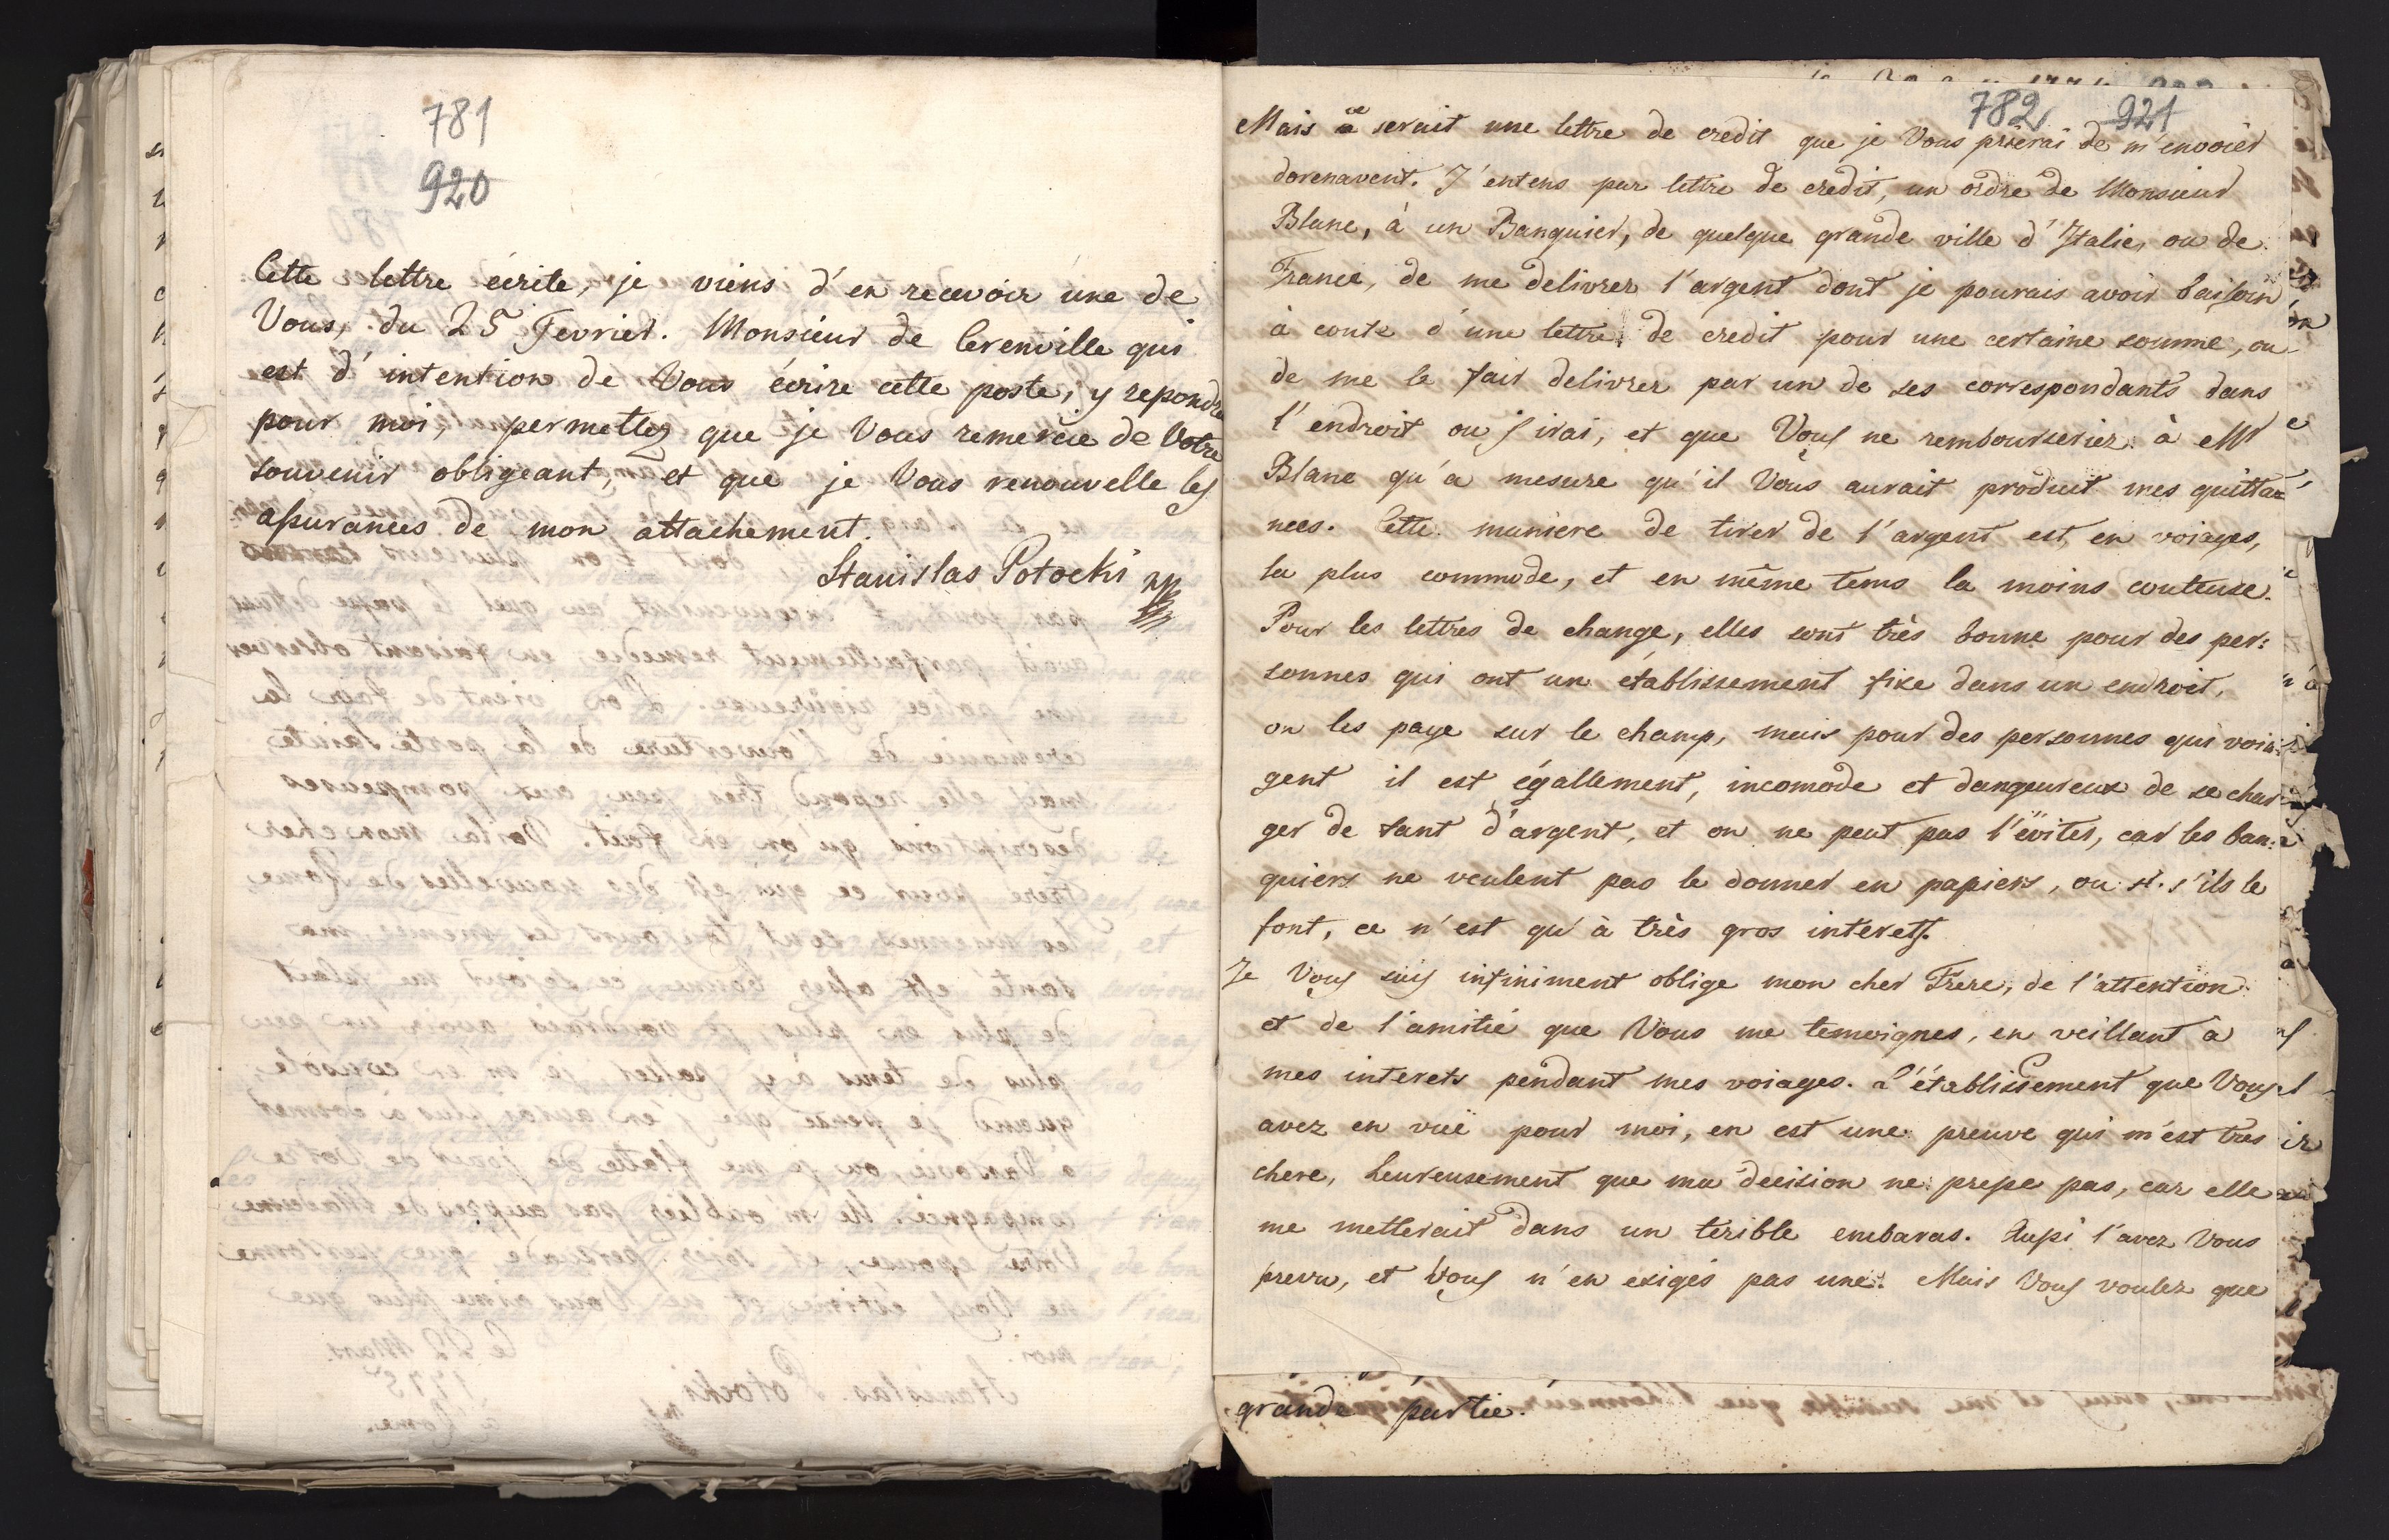 781
920
Cette lettre écrite, je viens d'en recevoir une de
Vous, du 25 Fevrier. Monsieur de Cerenville qui
est d'intention de Vous écrire cette poste, y repondra
pour moi, permettez que je Vous remercie de Votre
souvenir obligeant, et que je Vous renouvelle les
assurances de mon attachement.
Stanislas Potocki
782 921
Mais ce serait une lettre de credit que je Vous prierai de m'envoier
dorenavent. J'entens par lettre de credit, un ordre de Monsieur
Blanc, à un Banquier, de quelque grande ville d'Italie, ou de
France, de me delivrer l'argent dont je pourais avoir baisoin
à conte d'une lettre de credit pour une certaine somme, ou
de me le fair delivrer par un de ses correspondants dans
l'endroit ou j'irai, et que Vous ne rembourseriez à Mr
Blanc qu'a mesure qu'il Vous aurait produit mes quittan
nces. Cette maniere de tirer de l'argent est, en voiages,
la plus commode, et en même tems la moins couteuse.
Pour les lettres de change, elles sont très bonne pour des per:
sonnes qui ont un établissement fixe dans un endroit,
on les paye sur le champ, mais pour des personnes qui voia:
gent il est égallement, incomode et dangeureux de se char:
ger de tant d'argent, et on ne peut pas l'éviter, car les ban:
quiers ne veulent pas le donner en papiers, ou s'ils le
font, ce n'est qu'à très gros interets.
Je Vous suis infiniment oblige mon cher Frere, de l'attention
et de l'amitié que Vous me temoignes, en veillant à
mes interets pendant mes voiages. L'établissement que Vous
avez en vuë pour moi, en est une preuve qui m'est tres
chere, heureusement que ma decision ne presse pas, car elle
me metterait dans un terible embaras. Aussi l'avez Vous
prevu, et Vous n'en exigés pas une. Mais Vous voulez que
grande partie.